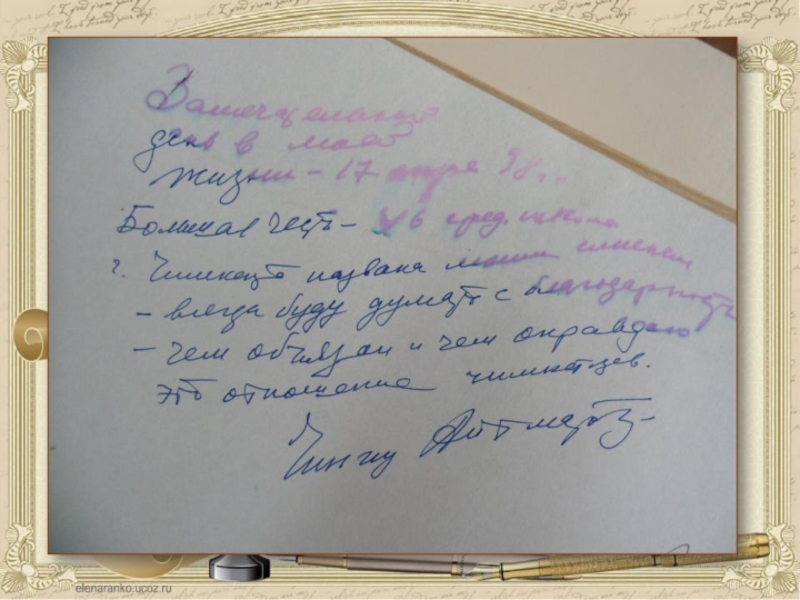 Замечательный
день в моей
жизни – 17 апр. 98 г. –
Большая честь – 46 сред. школа
г. Чимкента названа моим именем
– всегда буду думать с благодарностью
– чем обязан и чем оправдаю
это отношение чимкентцев.
Чингиз Айтматов
elenaranko.ucoz.ru